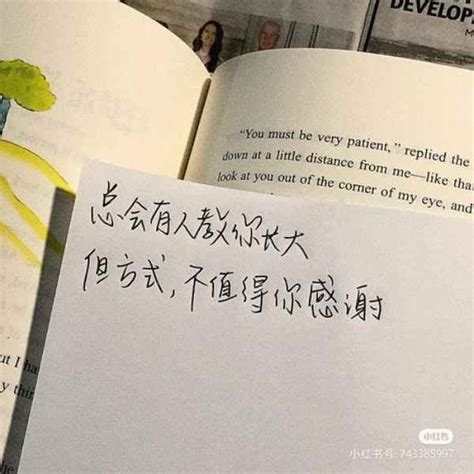 DEVELOP
"You must be very patient," replied the
down at a little distance from me—like tha
look at you out of the corner of my eye, and
总会有人教你长大
但方式，不值得你感谢
ut I ha
y thin
小红书
小红书号: 743385997